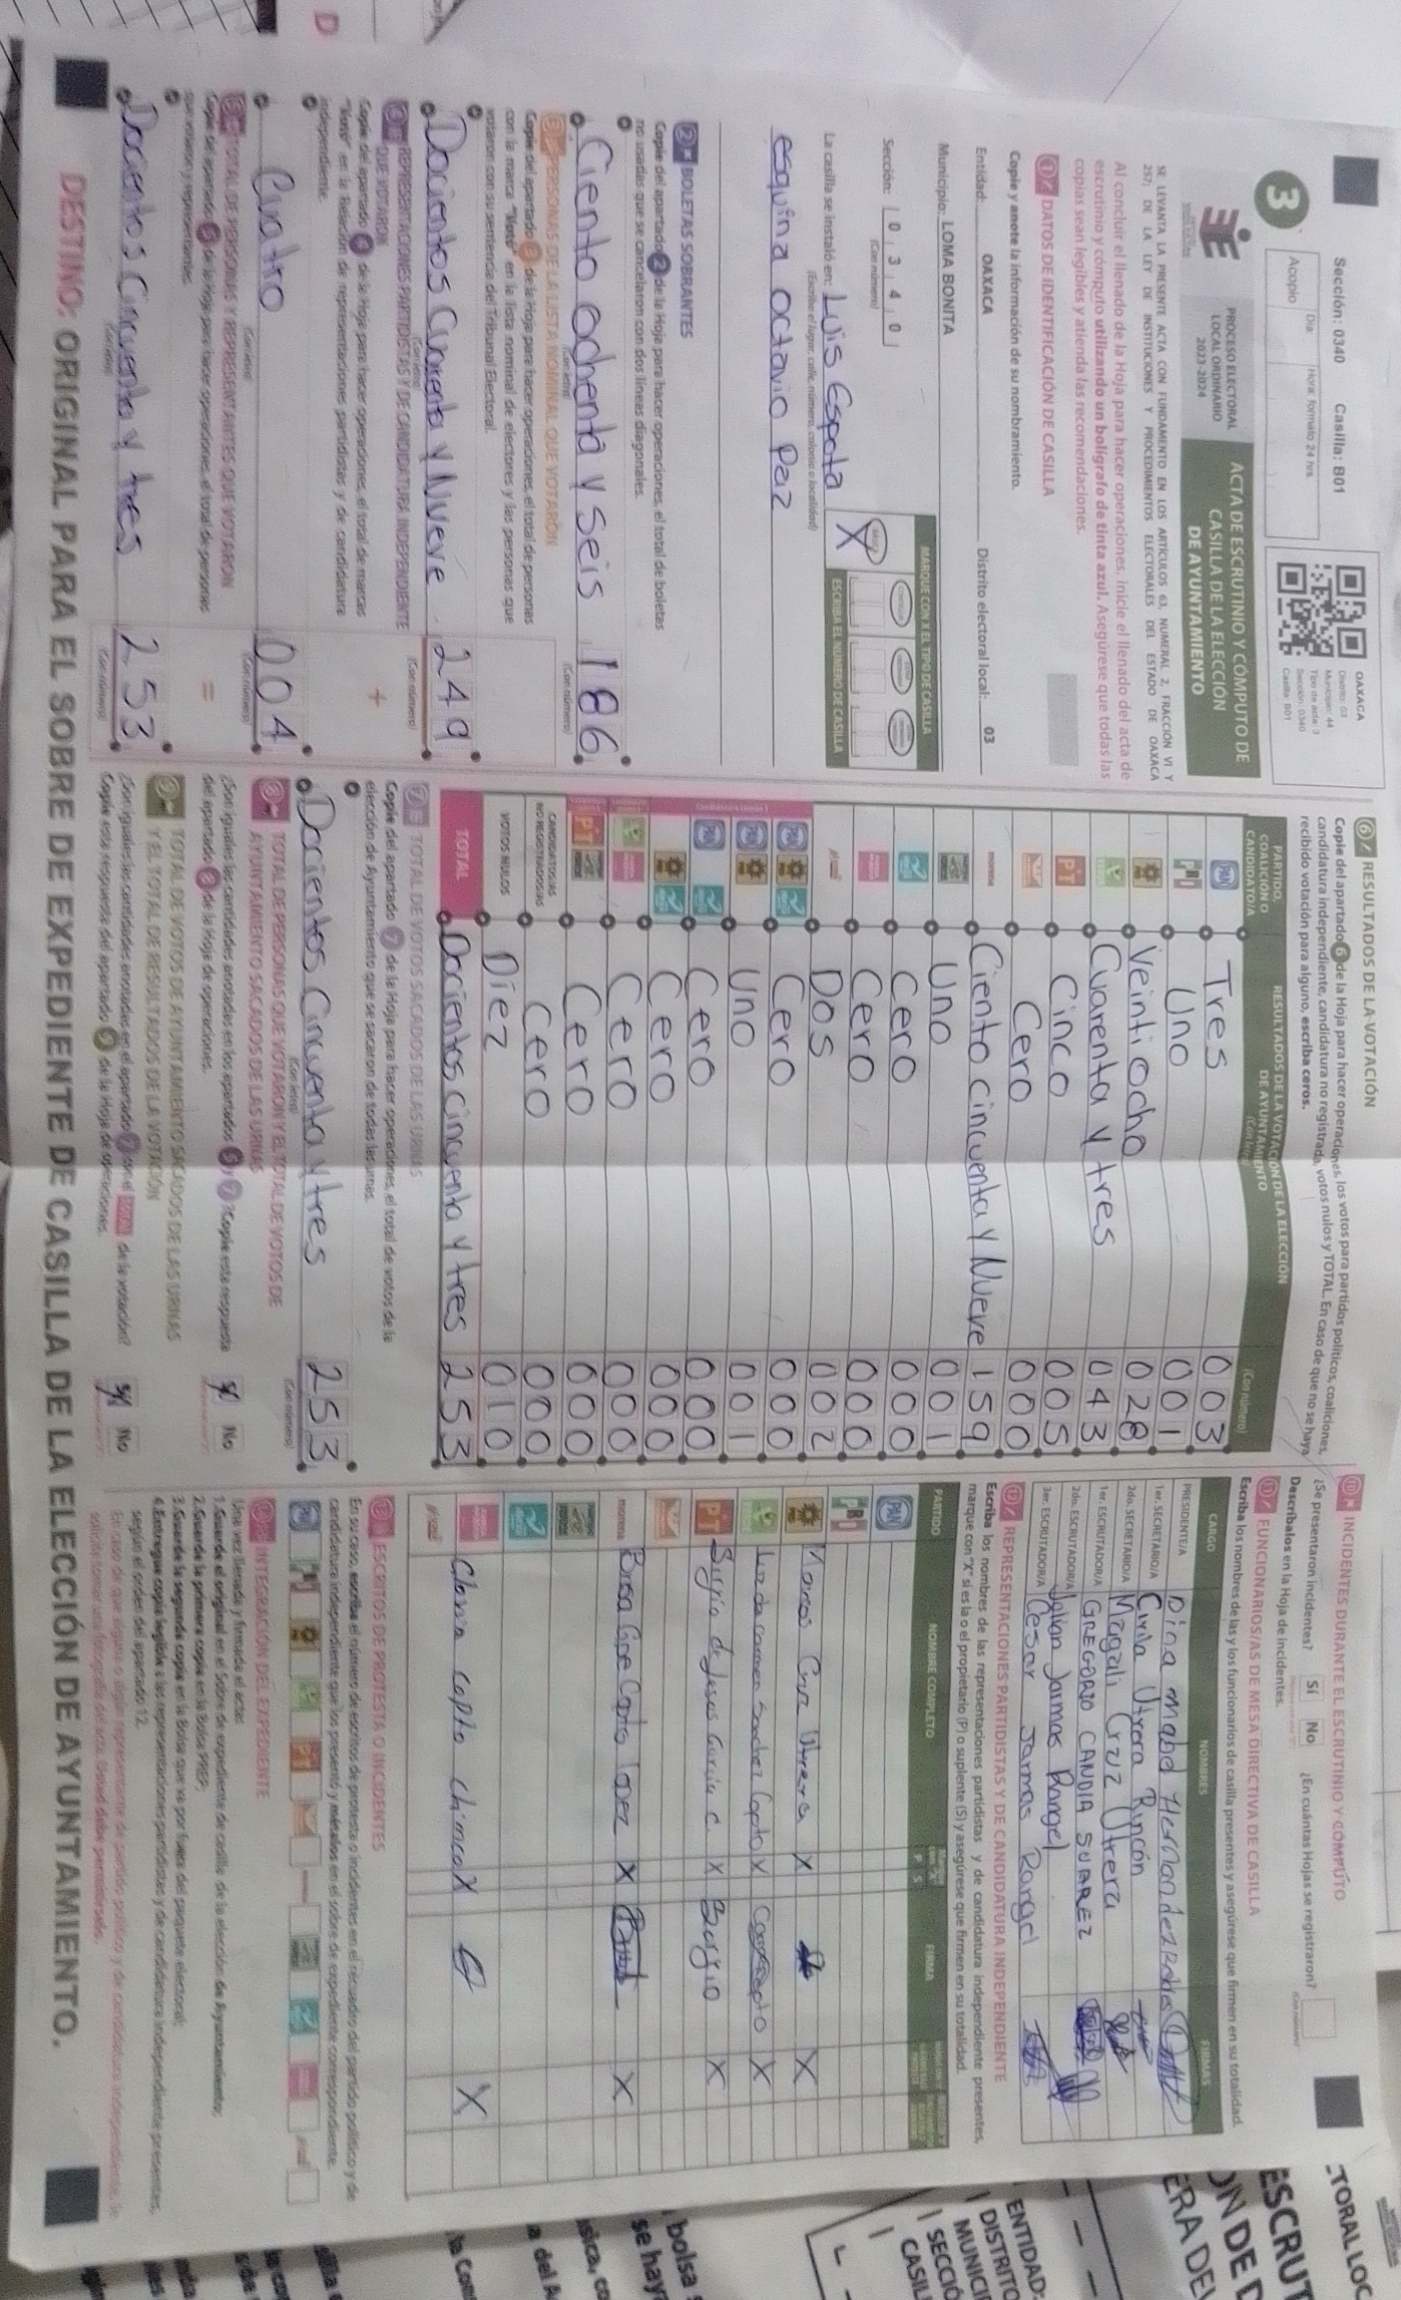 Sección: 0340 Casilla: B01
Día: Hora: formato 24 hrs.
Acopio
OAXACA
Distrito: 03
Municipio: 44
Tipo de acta: 3
Sección: 0340
Casilla: B01
3
PROCESO ELECTORAL
LOCAL ORDINARIO
2023-2024
ACTA DE ESCRUTINIO Y CÓMPUTO DE
CASILLA DE LA ELECCIÓN
DE AYUNTAMIENTO
SE LEVANTA LA PRESENTE ACTA CON FUNDAMENTO EN LOS ARTÍCULOS 63, NUMERAL 2, FRACCIÓN VI Y
257, DE LA LEY DE INSTITUCIONES Y PROCEDIMIENTOS ELECTORALES DEL ESTADO DE OAXACA
Al concluir el llenado de la Hoja para hacer operaciones, inicie el llenado del acta de
escrutinio y cómputo utilizando un bolígrafo de tinta azul. Asegúrese que todas las
copias sean legibles y atienda las recomendaciones.
1 DATOS DE IDENTIFICACIÓN DE CASILLA
Copie y anote la información de su nombramiento.
Entidad: OAXACA Distrito electoral local: 03
Municipio: LOMA BONITA
Sección: 0 3 4 0
(Con número)
MARQUE CON X EL TIPO DE CASILLA
X
ESCRIBA EL NÚMERO DE CASILLA
La casilla se instaló en: Luis Espota
(Escriba el lugar, calle, número, colonia o localidad)
esquina octavio Paiz
2 BOLETAS SOBRANTES
Copie del apartado 2 de la Hoja para hacer operaciones, el total de boletas
no usadas que se cancelaron con dos líneas diagonales.
Ciento Ochenta y Seis 186
(Con letra) (Con número)
3 PERSONAS DE LA LISTA NOMINAL QUE VOTARON
Copie del apartado 3 de la Hoja para hacer operaciones, el total de personas
con la marca "Votó" en la lista nominal de electores y las personas que
votaron con su sentencia del Tribunal Electoral.
Docientos Cuarenta y Nueve 249
(Con letra) (Con número)
4 REPRESENTACIONES PARTIDISTAS Y DE CANDIDATURA INDEPENDIENTE
QUE VOTARON
Copie del apartado 4 de la Hoja para hacer operaciones, el total de marcas
"Votó" en la Relación de representaciones partidistas y de candidatura
independiente.
+
Cuatro 004
(Con letra) (Con número)
5 TOTAL DE PERSONAS Y REPRESENTANTES QUE VOTARON
Copie del apartado 5 de la Hoja para hacer operaciones, el total de personas
que votaron y representantes.
=
Docientos Cincuenta y tres 253
(Con letra) (Con número)
6 RESULTADOS DE LA VOTACIÓN
Copie del apartado 6 de la Hoja para hacer operaciones, los votos para partidos políticos, coaliciones,
candidatura independiente, candidatura no registrada, votos nulos y TOTAL. En caso de que no se haya
recibido votación para alguno, escriba ceros.
PARTIDO,
COALICIÓN O
CANDIDATO/A
RESULTADOS DE LA VOTACIÓN DE LA ELECCIÓN
DE AYUNTAMIENTO
(Con letra) (Con número)
PAN Tres 003
PRI Uno 001
PRD Veinti ocho 028
VERDE Cuarenta y tres 043
PT Cinco 005
Cero 000
morena Ciento Cincuenta y Nueve 159
Uno 001
Cero 000
Cero 000
Dos 002
PAN PRD Cero 000
PAN PRD Uno 001
PAN Cero 000
PRD Cero 000
Cero 000
PT Cero 000
CANDIDATOS/AS
NO REGISTRADOS/AS Cero 000
VOTOS NULOS Diez 010
TOTAL Docientos cincuenta y tres 253
7 TOTAL DE VOTOS SACADOS DE LAS URNAS
Copie del apartado 7 de la Hoja para hacer operaciones, el total de votos de la
elección de Ayuntamiento que se sacaron de todas las urnas.
Docientos Cincuenta y tres 253
(Con letra) (Con número)
8 TOTAL DE PERSONAS QUE VOTARON Y EL TOTAL DE VOTOS DE
AYUNTAMIENTO SACADOS DE LAS URNAS
¿Son iguales las cantidades anotadas en los apartados 5 y 7? Copie esta respuesta
del apartado 8 de la Hoja de operaciones.
Sí No
9 TOTAL DE VOTOS DE AYUNTAMIENTO SACADOS DE LAS URNAS
Y EL TOTAL DE RESULTADOS DE LA VOTACIÓN
¿Son iguales las cantidades anotadas en el apartado 7 con el TOTAL de la votación?
Copie esta respuesta del apartado 9 de la Hoja de operaciones.
Sí No
10 INCIDENTES DURANTE EL ESCRUTINIO Y CÓMPUTO
¿Se presentaron incidentes? Sí No ¿En cuántas Hojas se registraron?
Descríbalos en la Hoja de incidentes.
11 FUNCIONARIOS/AS DE MESA DIRECTIVA DE CASILLA
Escriba los nombres de las y los funcionarios de casilla presentes y asegúrese que firmen en su totalidad.
CARGO NOMBRES FIRMAS
PRESIDENTE/A Dina Mabel Hernandez
1er. SECRETARIO/A Cirila Utrera Rincón
2do. SECRETARIO/A Magali Cruz Utrera
1er. ESCRUTADOR/A GREGORIO CANDIA SUAREZ
2do. ESCRUTADOR/A Julian Jamas Rangel
3er. ESCRUTADOR/A Cesar Jamas Rangel
12 REPRESENTACIONES PARTIDISTAS Y DE CANDIDATURA INDEPENDIENTE
Escriba los nombres de las representaciones partidistas y de candidatura independiente presentes,
marque con "X" si es la o el propietario (P) o suplente (S) y asegúrese que firmen en su totalidad.
PARTIDO NOMBRE COMPLETO P S FIRMA
PAN
PRI
PRD Marcos Cruz Utrera X X
VERDE Luz del carmen Sanchez Copto X X
PT Sergio de Jesus Garcia C. X Sergio X
morena Rosa Gpe Copto Lopez X X
Gloria Copto Chimea X X
13 ESCRITOS DE PROTESTA O INCIDENTES
En su caso, escriba el número de escritos de protesta o incidentes en el recuadro del partido político y de
candidatura independiente que los presentó y métalos en el sobre de expediente correspondiente.
14 INTEGRACIÓN DEL EXPEDIENTE
Una vez llenada y firmada el acta:
1.Guarde el original en el Sobre de expediente de casilla de la elección de Ayuntamiento;
2.Guarde la primera copia en la Bolsa PREP;
3.Guarde la segunda copia en la Bolsa que va por fuera del paquete electoral;
4.Entregue copia legible a las representaciones partidistas y de candidatura independiente presentes,
según el orden del apartado 12.
DESTINO: ORIGINAL PARA EL SOBRE DE EXPEDIENTE DE CASILLA DE LA ELECCIÓN DE AYUNTAMIENTO.
TORAL LOC
ESCRUT
ÓN DE D
ERA DE
ENTIDAD:
DISTRITO
MUNICI
SECCIÓ
CASIL
bolsa
se hay